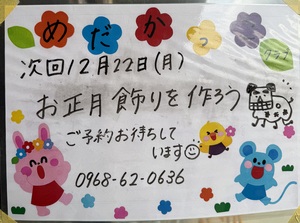 めだかっ
クラブ
次回12月22日(月)
お正月飾りを作ろう
ご予約お待ちして
います
0968-62-0636